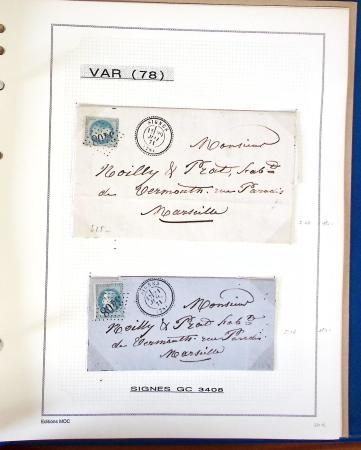 VAR (78)
SIGNES
78
3408
Monsieur
Noilly & Prat, fab^ts
de Vermouth. rue Paradis
Marseille
SIGNES
78
3408
Monsieur
Noilly & Prat fab^ts
de Vermouth rue Paradis
Marseille
SIGNES GC 3408
Editions MOC